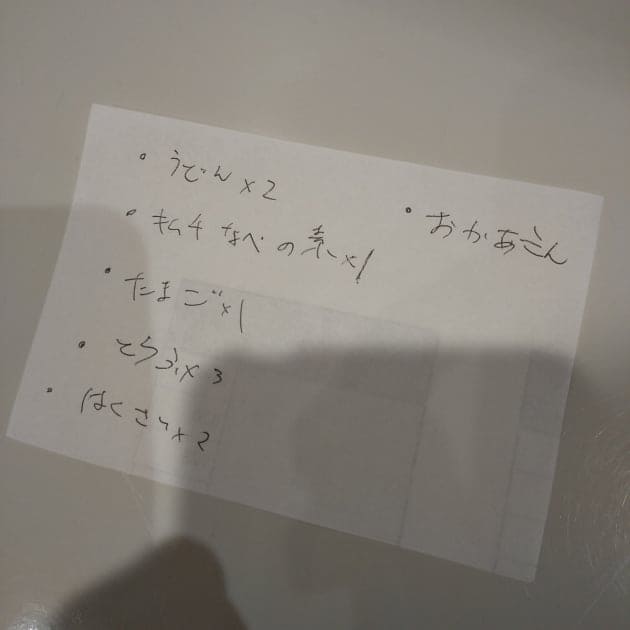 • うどん×2
• キムチなべの素×1
• たまご×1
• とうふ×3
• はくさい×2
• おかあさん